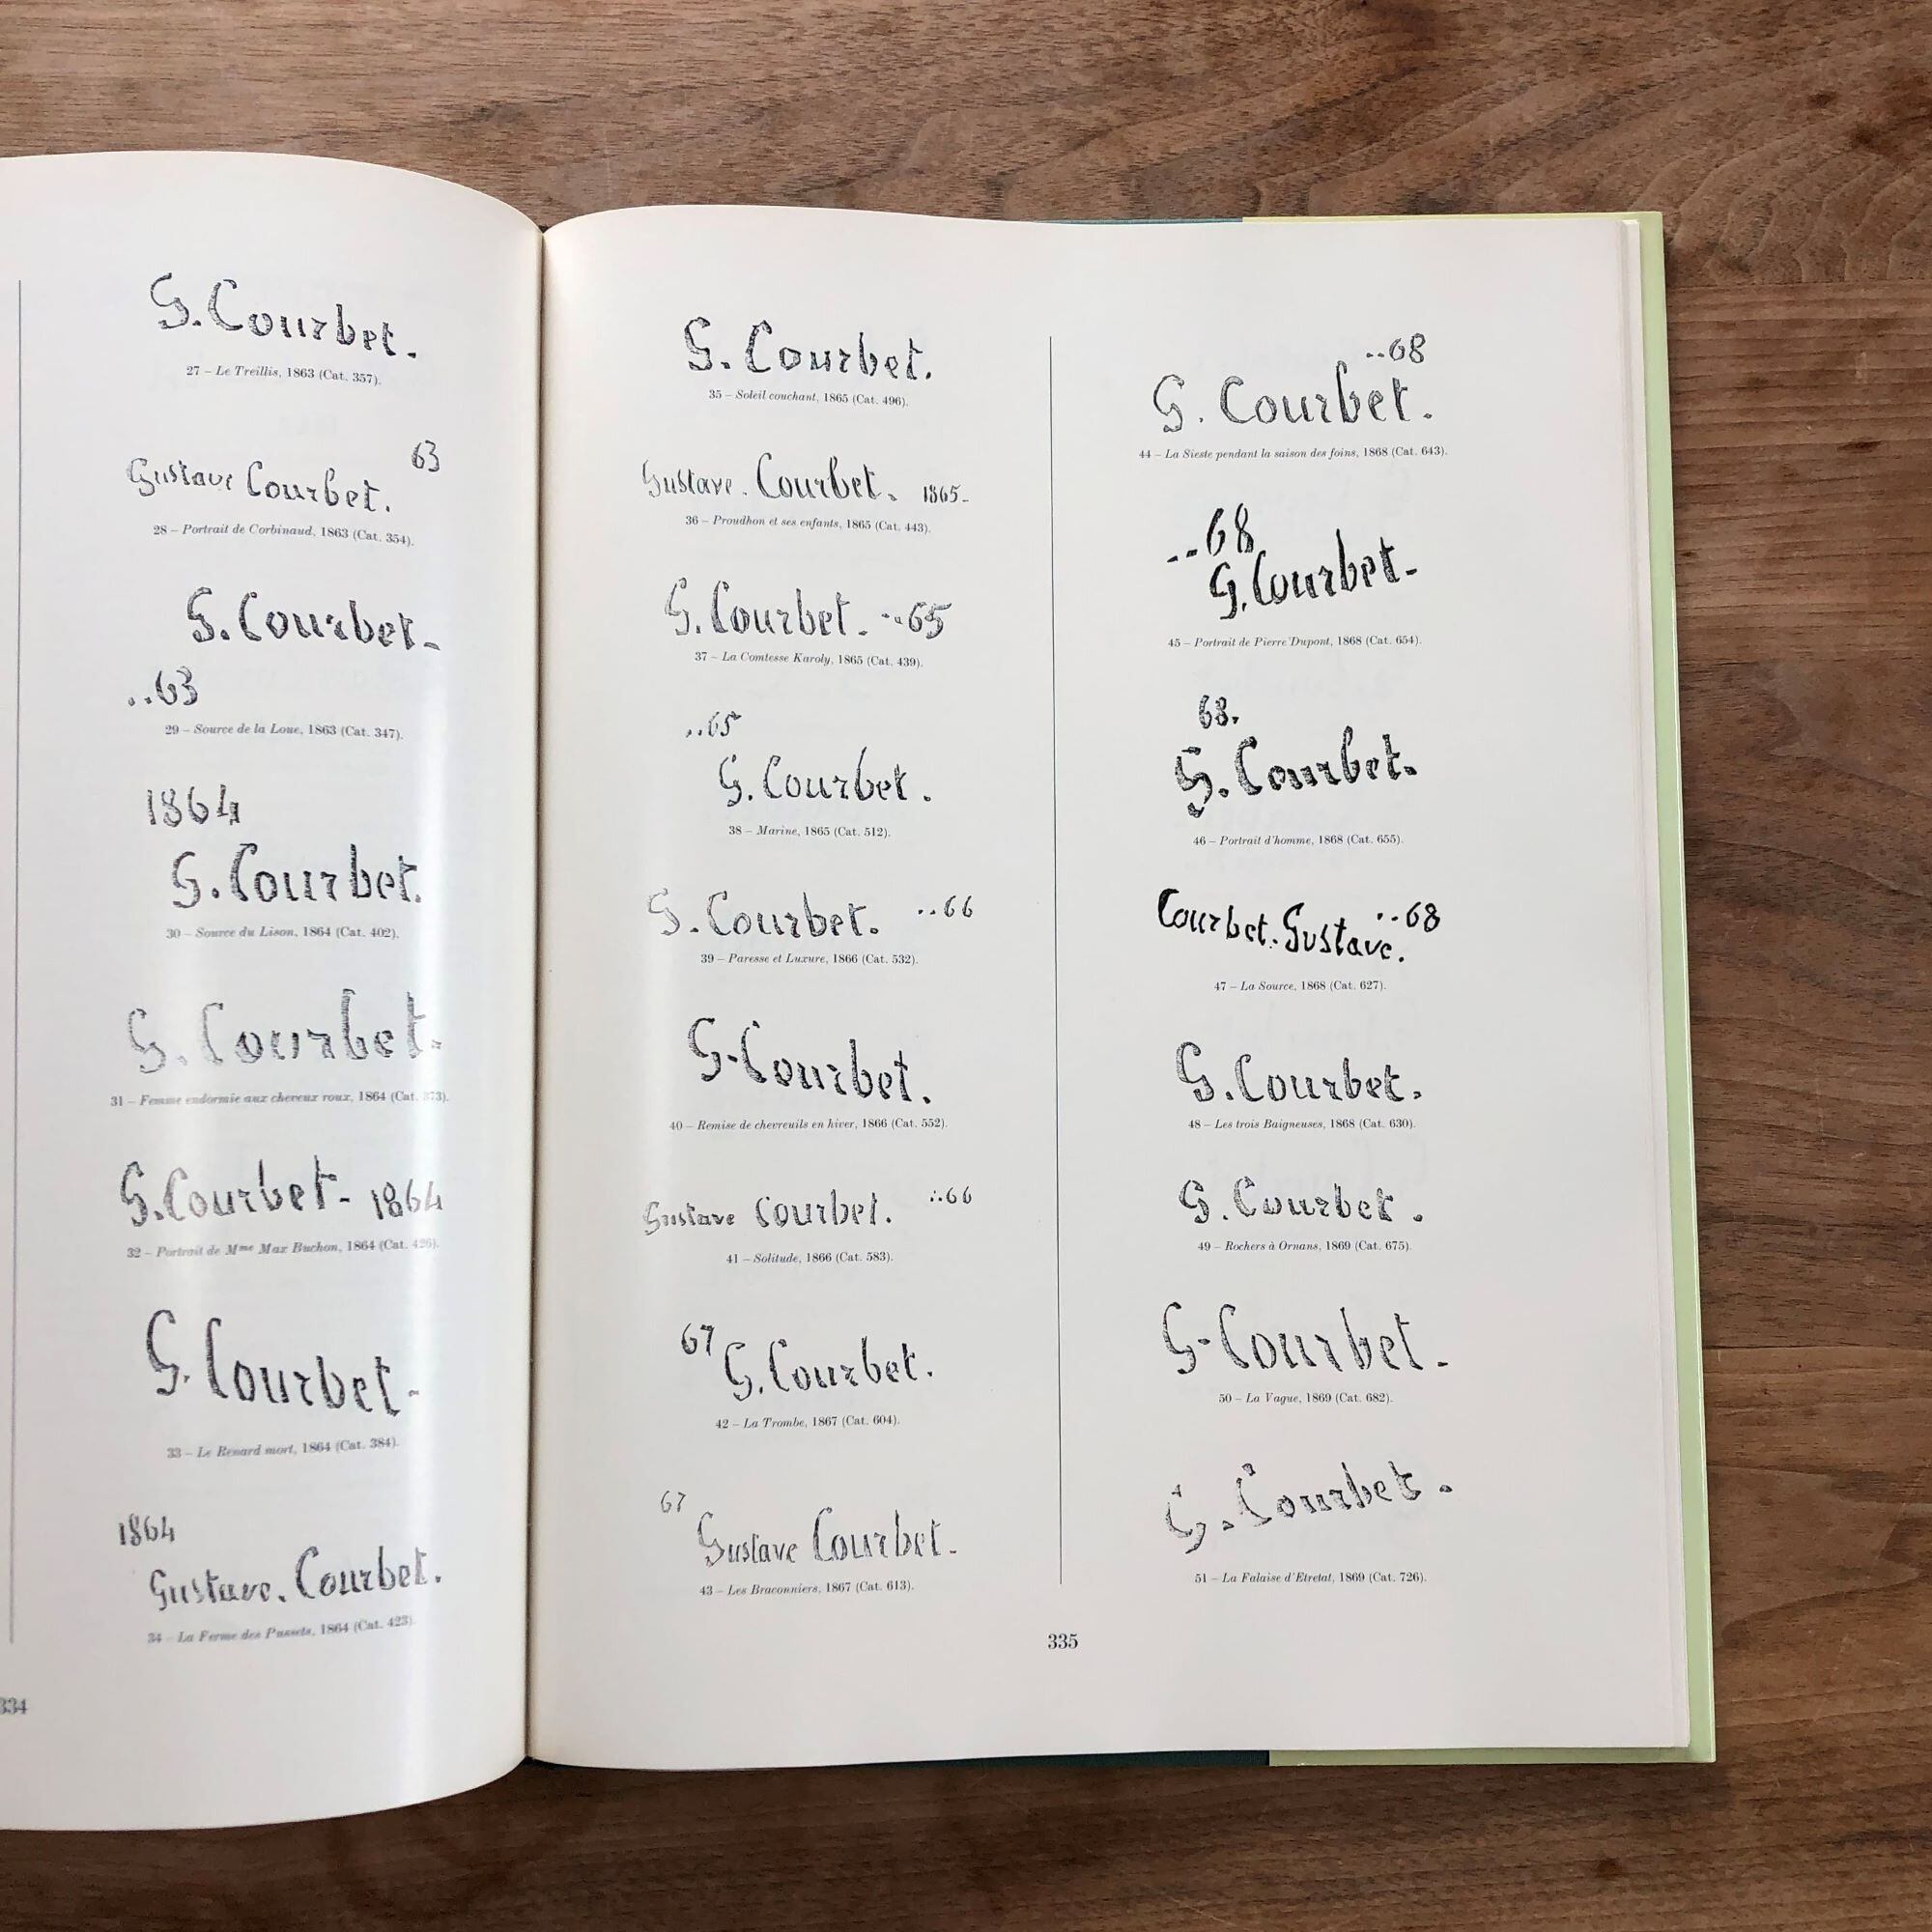 G. Courbet.
27 – Le Treillis, 1863 (Cat. 357).
63
Gustave Courbet.
28 – Portrait de Corbinaud, 1863 (Cat. 354).
G. Courbet-
..63
29 – Source de la Loue, 1863 (Cat. 347).
1864
G. Courbet.
30 – Source du Lison, 1864 (Cat. 402).
G. Courbet.
31 – Femme endormie aux cheveux roux, 1864 (Cat. 373).
G. Courbet- 1864
32 – Portrait de Mme Max Buchon, 1864 (Cat. 426).
G. Courbet-
33 – Le Renard mort, 1864 (Cat. 384).
1864
Gustave. Courbet.
34 – La Ferme des Pussets, 1864 (Cat. 423).
334
G. Courbet.
35 – Soleil couchant, 1865 (Cat. 496).
Gustave. Courbet. 1865-
36 – Proudhon et ses enfants, 1865 (Cat. 443).
G. Courbet. ..65
37 – La Comtesse Karoly, 1865 (Cat. 439).
..65
G. Courbet.
38 – Marine, 1865 (Cat. 512).
G. Courbet. ..66
39 – Paresse et Luxure, 1866 (Cat. 532).
G-Courbet.
40 – Remise de chevreuils en hiver, 1866 (Cat. 552).
Gustave Courbet. ..66
41 – Solitude, 1866 (Cat. 583).
67
G. Courbet.
42 – La Trombe, 1867 (Cat. 604).
67
Gustave Courbet-
43 – Les Braconniers, 1867 (Cat. 613).
..68
G. Courbet.
44 – La Sieste pendant la saison des foins, 1868 (Cat. 643).
..68
G. Courbet-
45 – Portrait de Pierre Dupont, 1868 (Cat. 654).
68.
G. Courbet.
46 – Portrait d'homme, 1868 (Cat. 655).
Courbet. Gustave. ..68
47 – La Source, 1868 (Cat. 627).
G. Courbet.
48 – Les trois Baigneuses, 1868 (Cat. 630).
G. Courbet.
49 – Rochers à Ornans, 1869 (Cat. 675).
G-Courbet-
50 – La Vague, 1869 (Cat. 682).
G. Courbet.
51 – La Falaise d'Etretat, 1869 (Cat. 726).
335